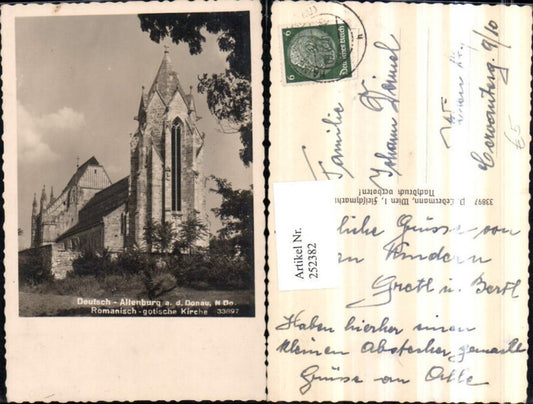 Deutsch - Altenburg a. d. Donau, N Do.
Romanisch - gotische Kirche 33897
6 Deutsches Reich 6
Familie
Johann
33897 P. Ledermann, Wien I, Fleischmarkt
Nachdruck verboten!
Artikel Nr.
252382
liche Grüsse von
Kindern
Gretl u. Bertl
Haben hierher einen
kleinen Abstecher gemacht
Grüsse an Alle